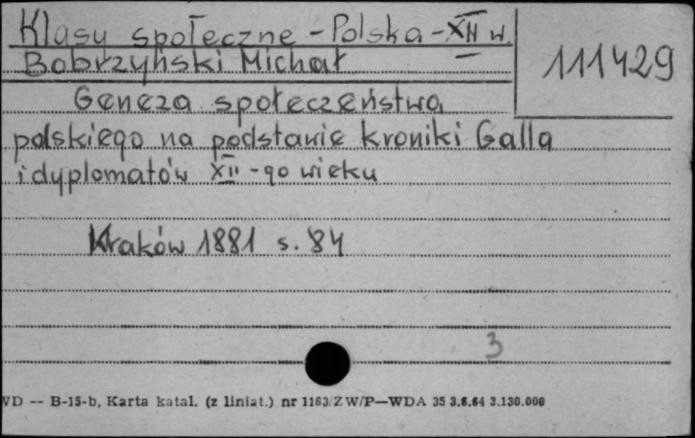 Klasy społeczne - Polska - XII w.
111429
Bobrzyński Michał
Geneza społeczeństwa
polskiego na podstawie kroniki Galla
i dyplomatów XII-go wieku
Kraków 1881 s. 84
3
WD -- B-15-b, Karta katal. (z liniat.) nr 1163/ZW/P—WDA 35 3.6.64 3.130.000